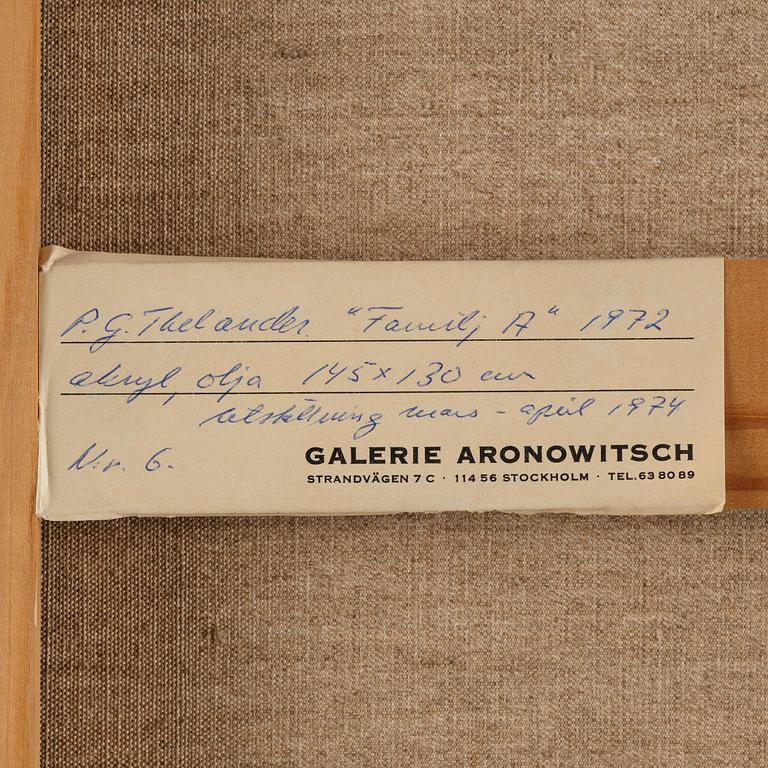 P.G. Thelander. "Familj A" 1972
akryl, olja 145x130 cm
utställning mars - april 1974
N:r. 6.
GALERIE ARONOWITSCH
STRANDVÄGEN 7 C · 114 56 STOCKHOLM · TEL. 63 80 89